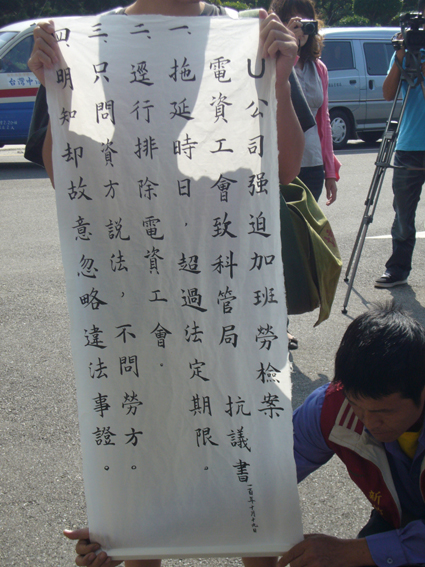 U公司強迫加班勞檢案
電資工會致科管局 抗議書
一百年十月十九日
一.拖延時日，超過法定期限。
二.逕行排除電資工會．
三.只問資方說法，不問勞方。
四.明知却故意忽略違法事證。
台灣中
新